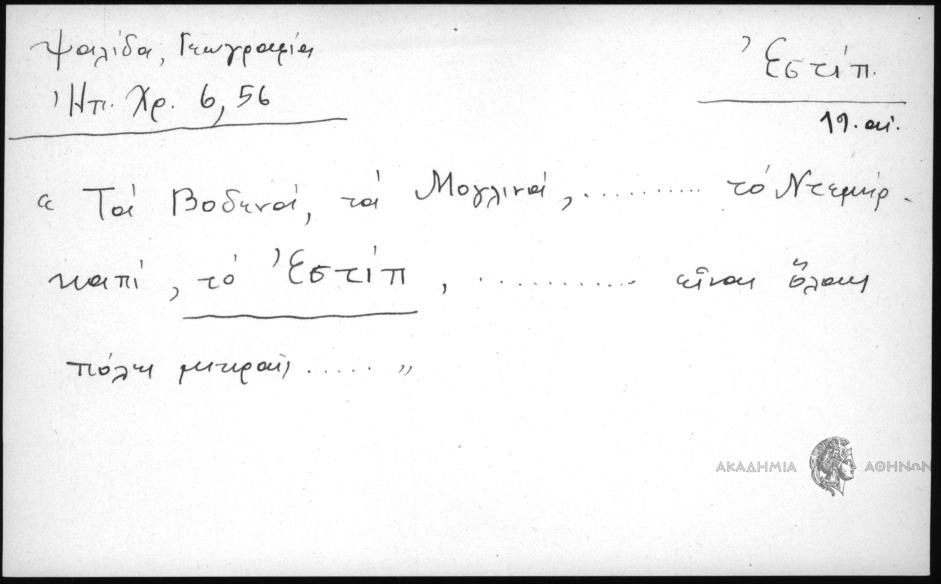 Ψαλίδα, Γεωγραφία
Ἠπ. Χρ. 6, 56
Ἐστίπ.
19. αἰ.
« Τά Βοδενά, τά Μογλινά, .......... τό Ντεμίρ-
καπί, τό Ἐστίπ, ............ εἶναι ὅλαις
πόλεις μικραῖς ..... »
ΑΚΑΔΗΜΙΑ ΑΘΗΝΩΝ